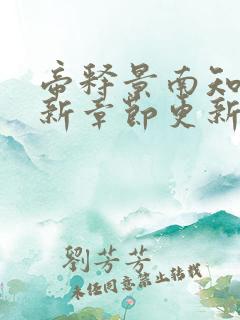 帝释景南知
新章节更新
劉芳芳
未经同意禁止转载